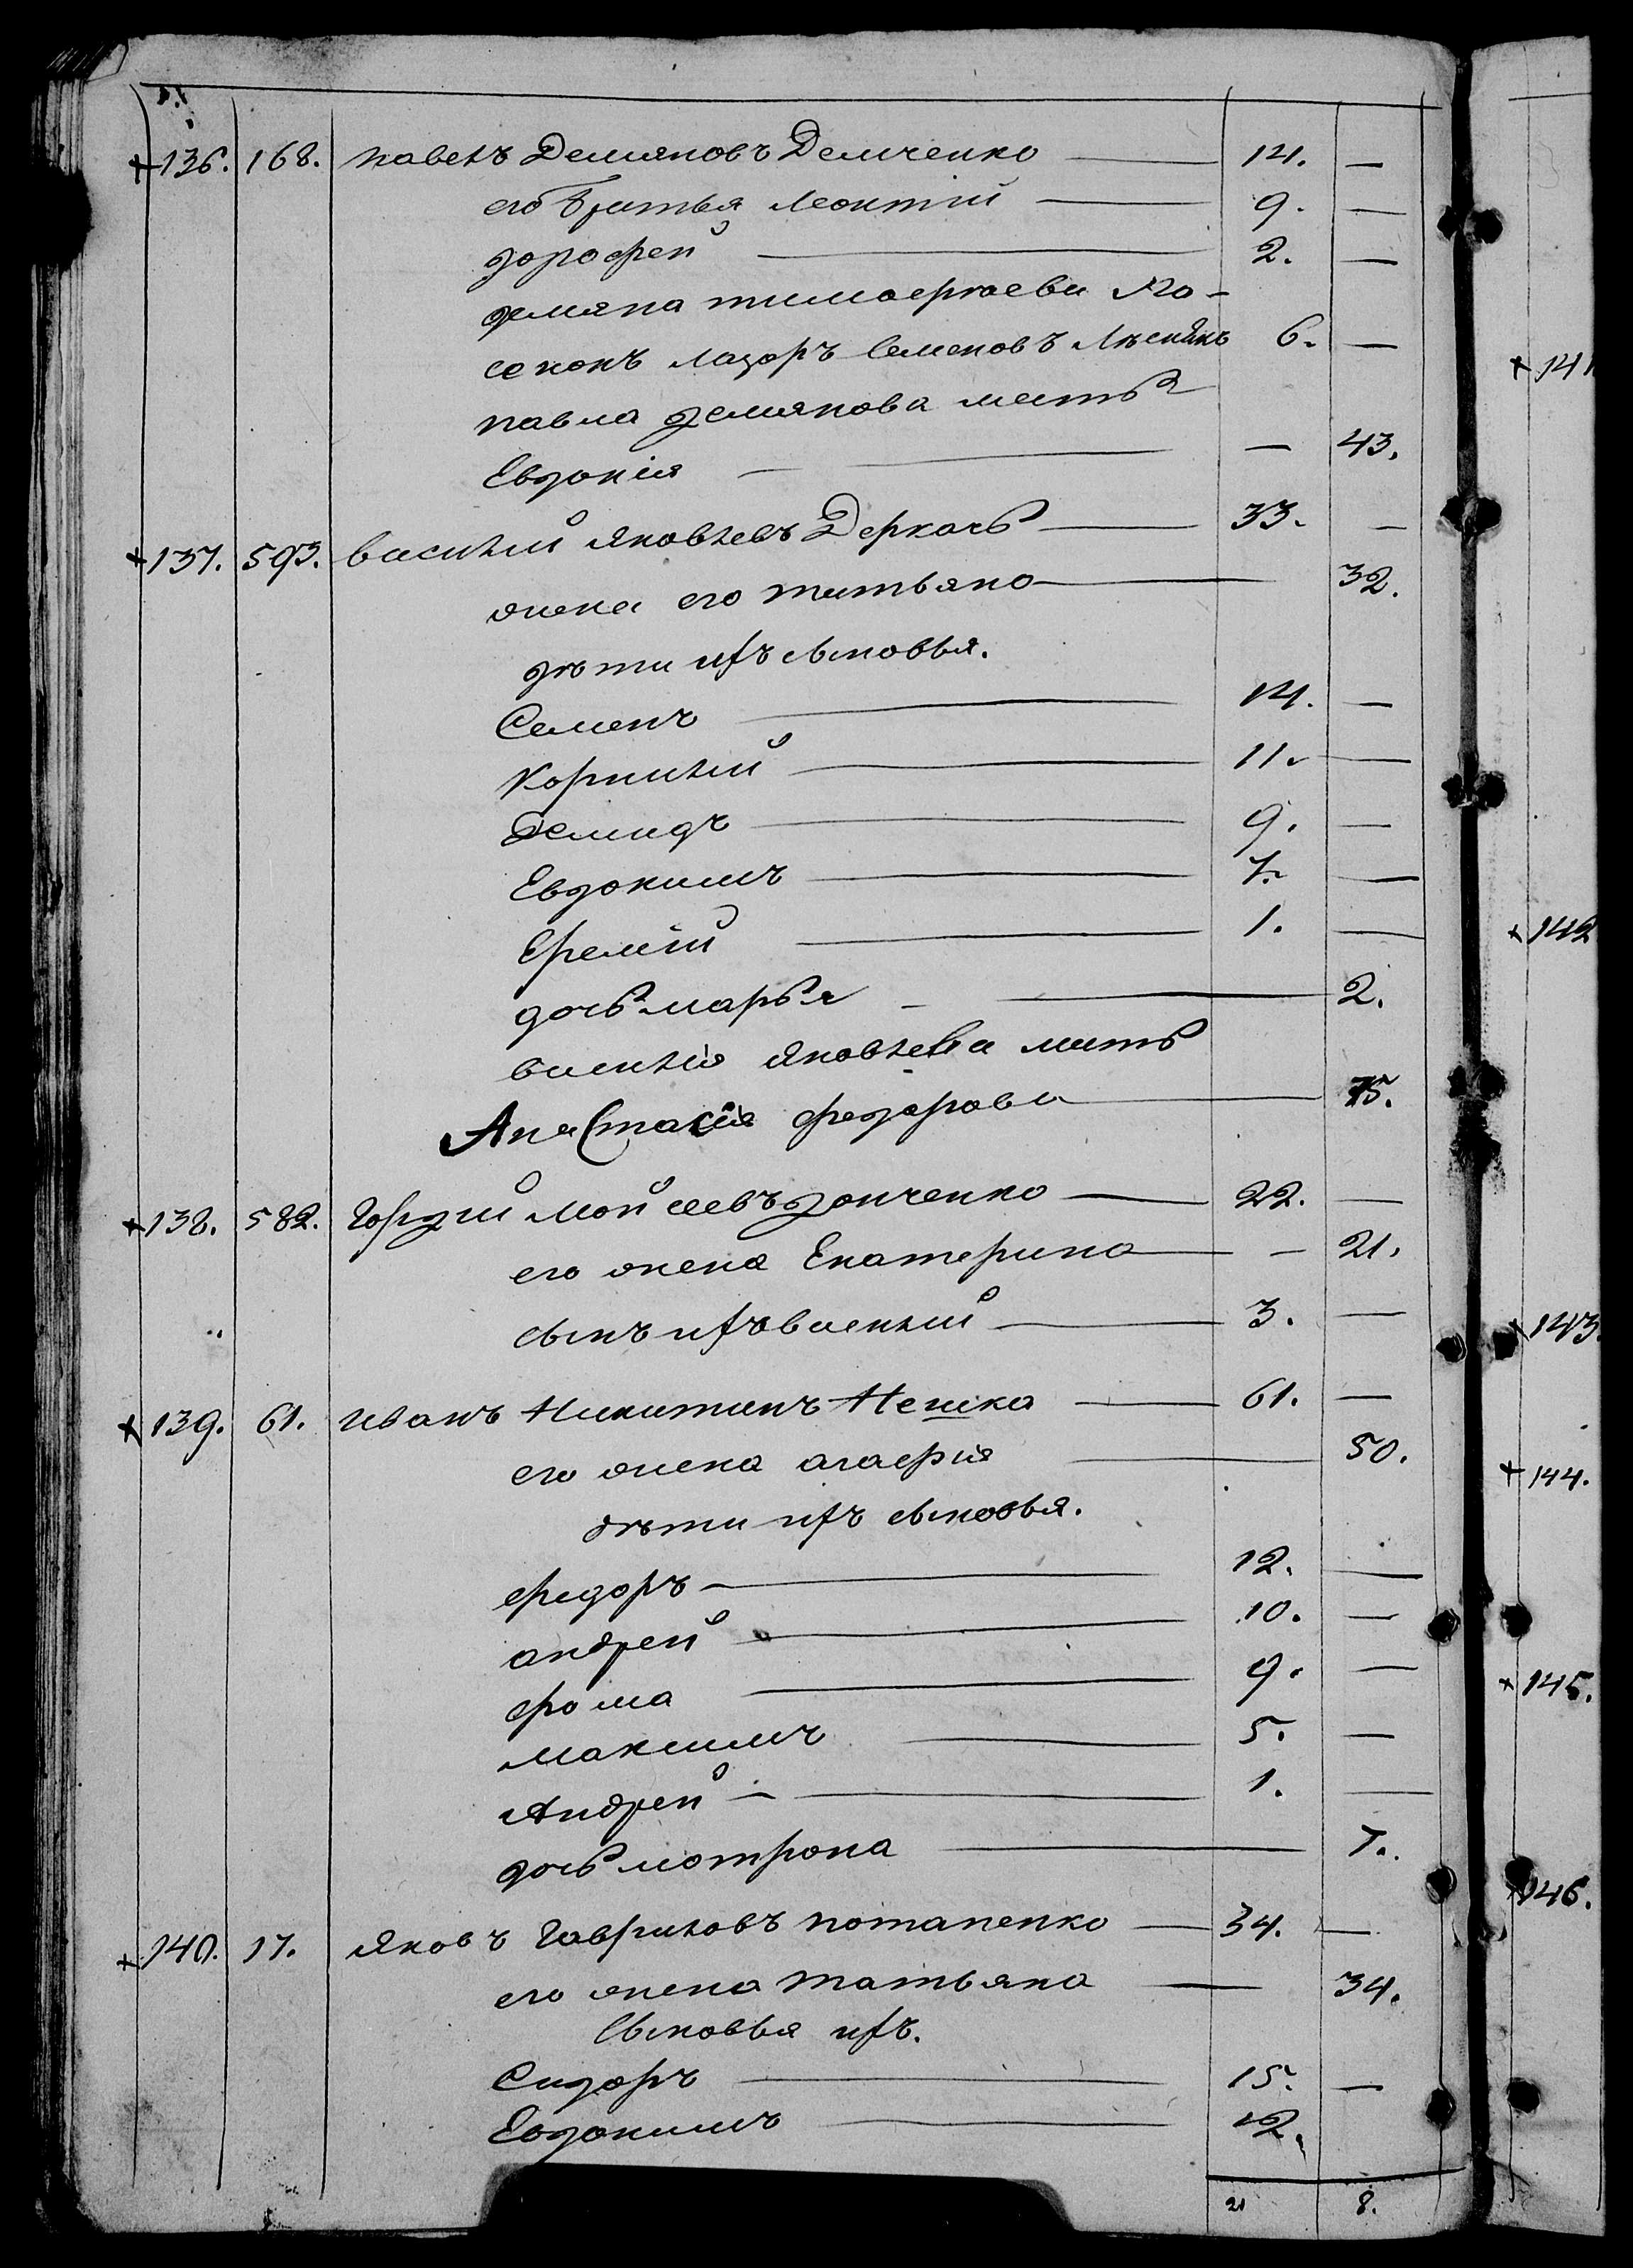 136. 168. павелъ Демяновъ Демченко — 14. —
его братья Леонтій — 9. —
дорофей — 2. —
демяна тимофеева По-
сонокъ лазоръ Семеновъ 6. —
павла демянова мать
Евдокія — — 43.
137. 593. василий яковлевъ Деркачь — 33. —
жена его татьяна — 32.
дѣти ихъ сыновья.
Семенъ — 14. —
Корнилий — 11. —
Демидъ — 9. —
Евдокимъ — 7. —
Еремій — 1. —
дочь марья — 2.
василія яковлева мать
Анастасія федорова — 75.
138. 582. Гордій мойсеевъ донченко — 22. —
его жена Екатерина — — 21.
сынъ ихъ василий — 3. —
139. 61. иванъ Никитинъ Нешка — 61. —
его жена агафія — 50.
дѣти ихъ сыновья.
федоръ — 12. —
андрей — 10. —
фома — 9. —
максимъ — 5. —
Андрей — 1. —
дочь мотрона — 7.
140. 17. яковъ Гавриловъ потапенко — 34. —
его жена татьяна — 34.
Сыновья ихъ.
Сидоръ — 15. —
Евдокимъ — 12.
21 8.
141
142
143.
144.
145.
146.